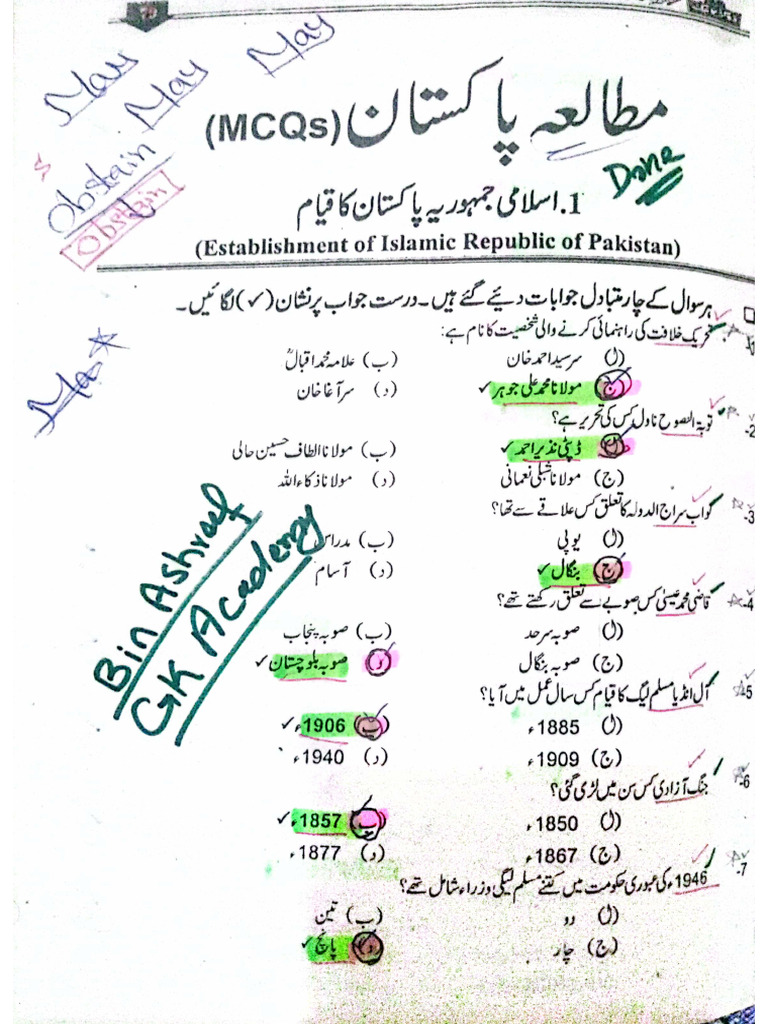 May May May
مطالعہ پاکستان (MCQs)
Obstain
Obstain
Done
1. اسلامی جمہوریہ پاکستان کا قیام
(Establishment of Islamic Republic of Pakistan)
ہر سوال کے چار متبادل جوابات دیئے گئے ہیں۔ درست جواب پر نشان (✓) لگائیں۔
1- تحریک خلافت کی راہنمائی کرنے والی شخصیت کا نام ہے:
(ا) سرسید احمد خان (ب) علامہ محمد اقبالؒ
(ج) مولانا محمد علی جوہر ✓ (د) سر آغا خان
2- توبۃ النصوح ناول کس کی تحریر ہے؟
(ا) ڈپٹی نذیر احمد ✓ (ب) مولانا الطاف حسین حالی
(ج) مولانا شبلی نعمانی (د) مولانا ذکاء اللہ
3- نواب سراج الدولہ کا تعلق کس علاقے سے تھا؟
(ا) یوپی (ب) مدراس
(ج) بنگال ✓ (د) آسام
Bin Ashraf
GK Academy
4- قاضی محمد عیسیٰ کس صوبے سے تعلق رکھتے تھے؟
(ا) صوبہ سرحد (ب) صوبہ پنجاب
(ج) صوبہ بنگال (د) صوبہ بلوچستان ✓
5- آل انڈیا مسلم لیگ کا قیام کس سال عمل میں آیا؟
(ا) 1885ء (ب) 1906ء ✓
(ج) 1909ء (د) 1940ء
6- جنگ آزادی کس سن میں لڑی گئی؟
(ا) 1850ء (ب) 1857ء ✓
(ج) 1867ء (د) 1877ء
7- 1946ء کی عبوری حکومت میں کتنے مسلم لیگی وزراء شامل تھے؟
(ا) دو (ب) تین
(ج) چار (د) پانچ ✓